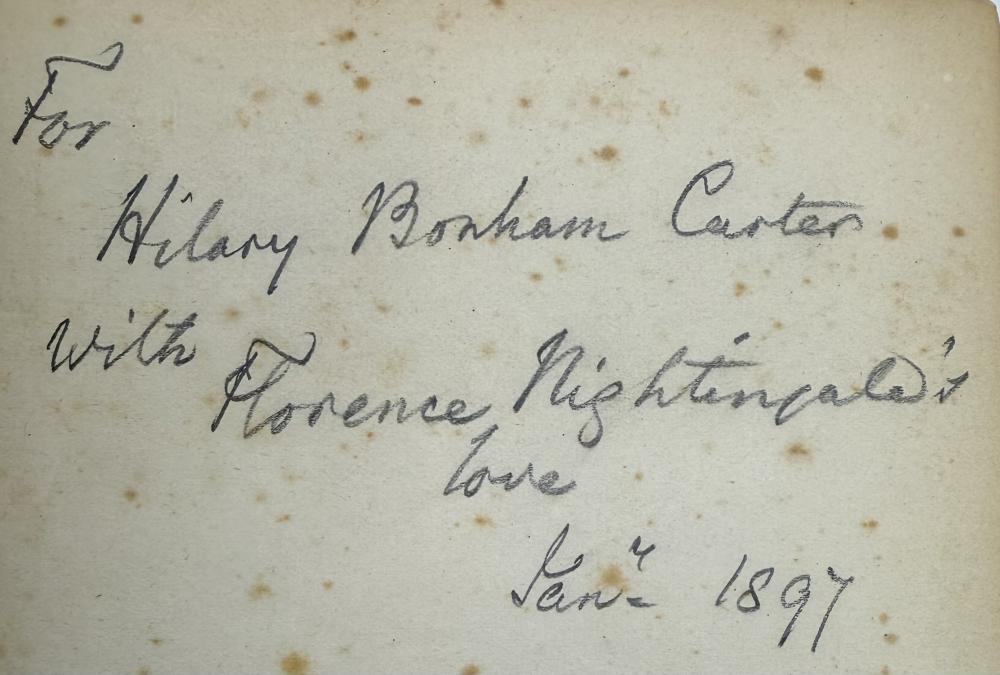 For
Hilary Bonham Carter
with Florence Nightingale's
love
Janʸ 1897